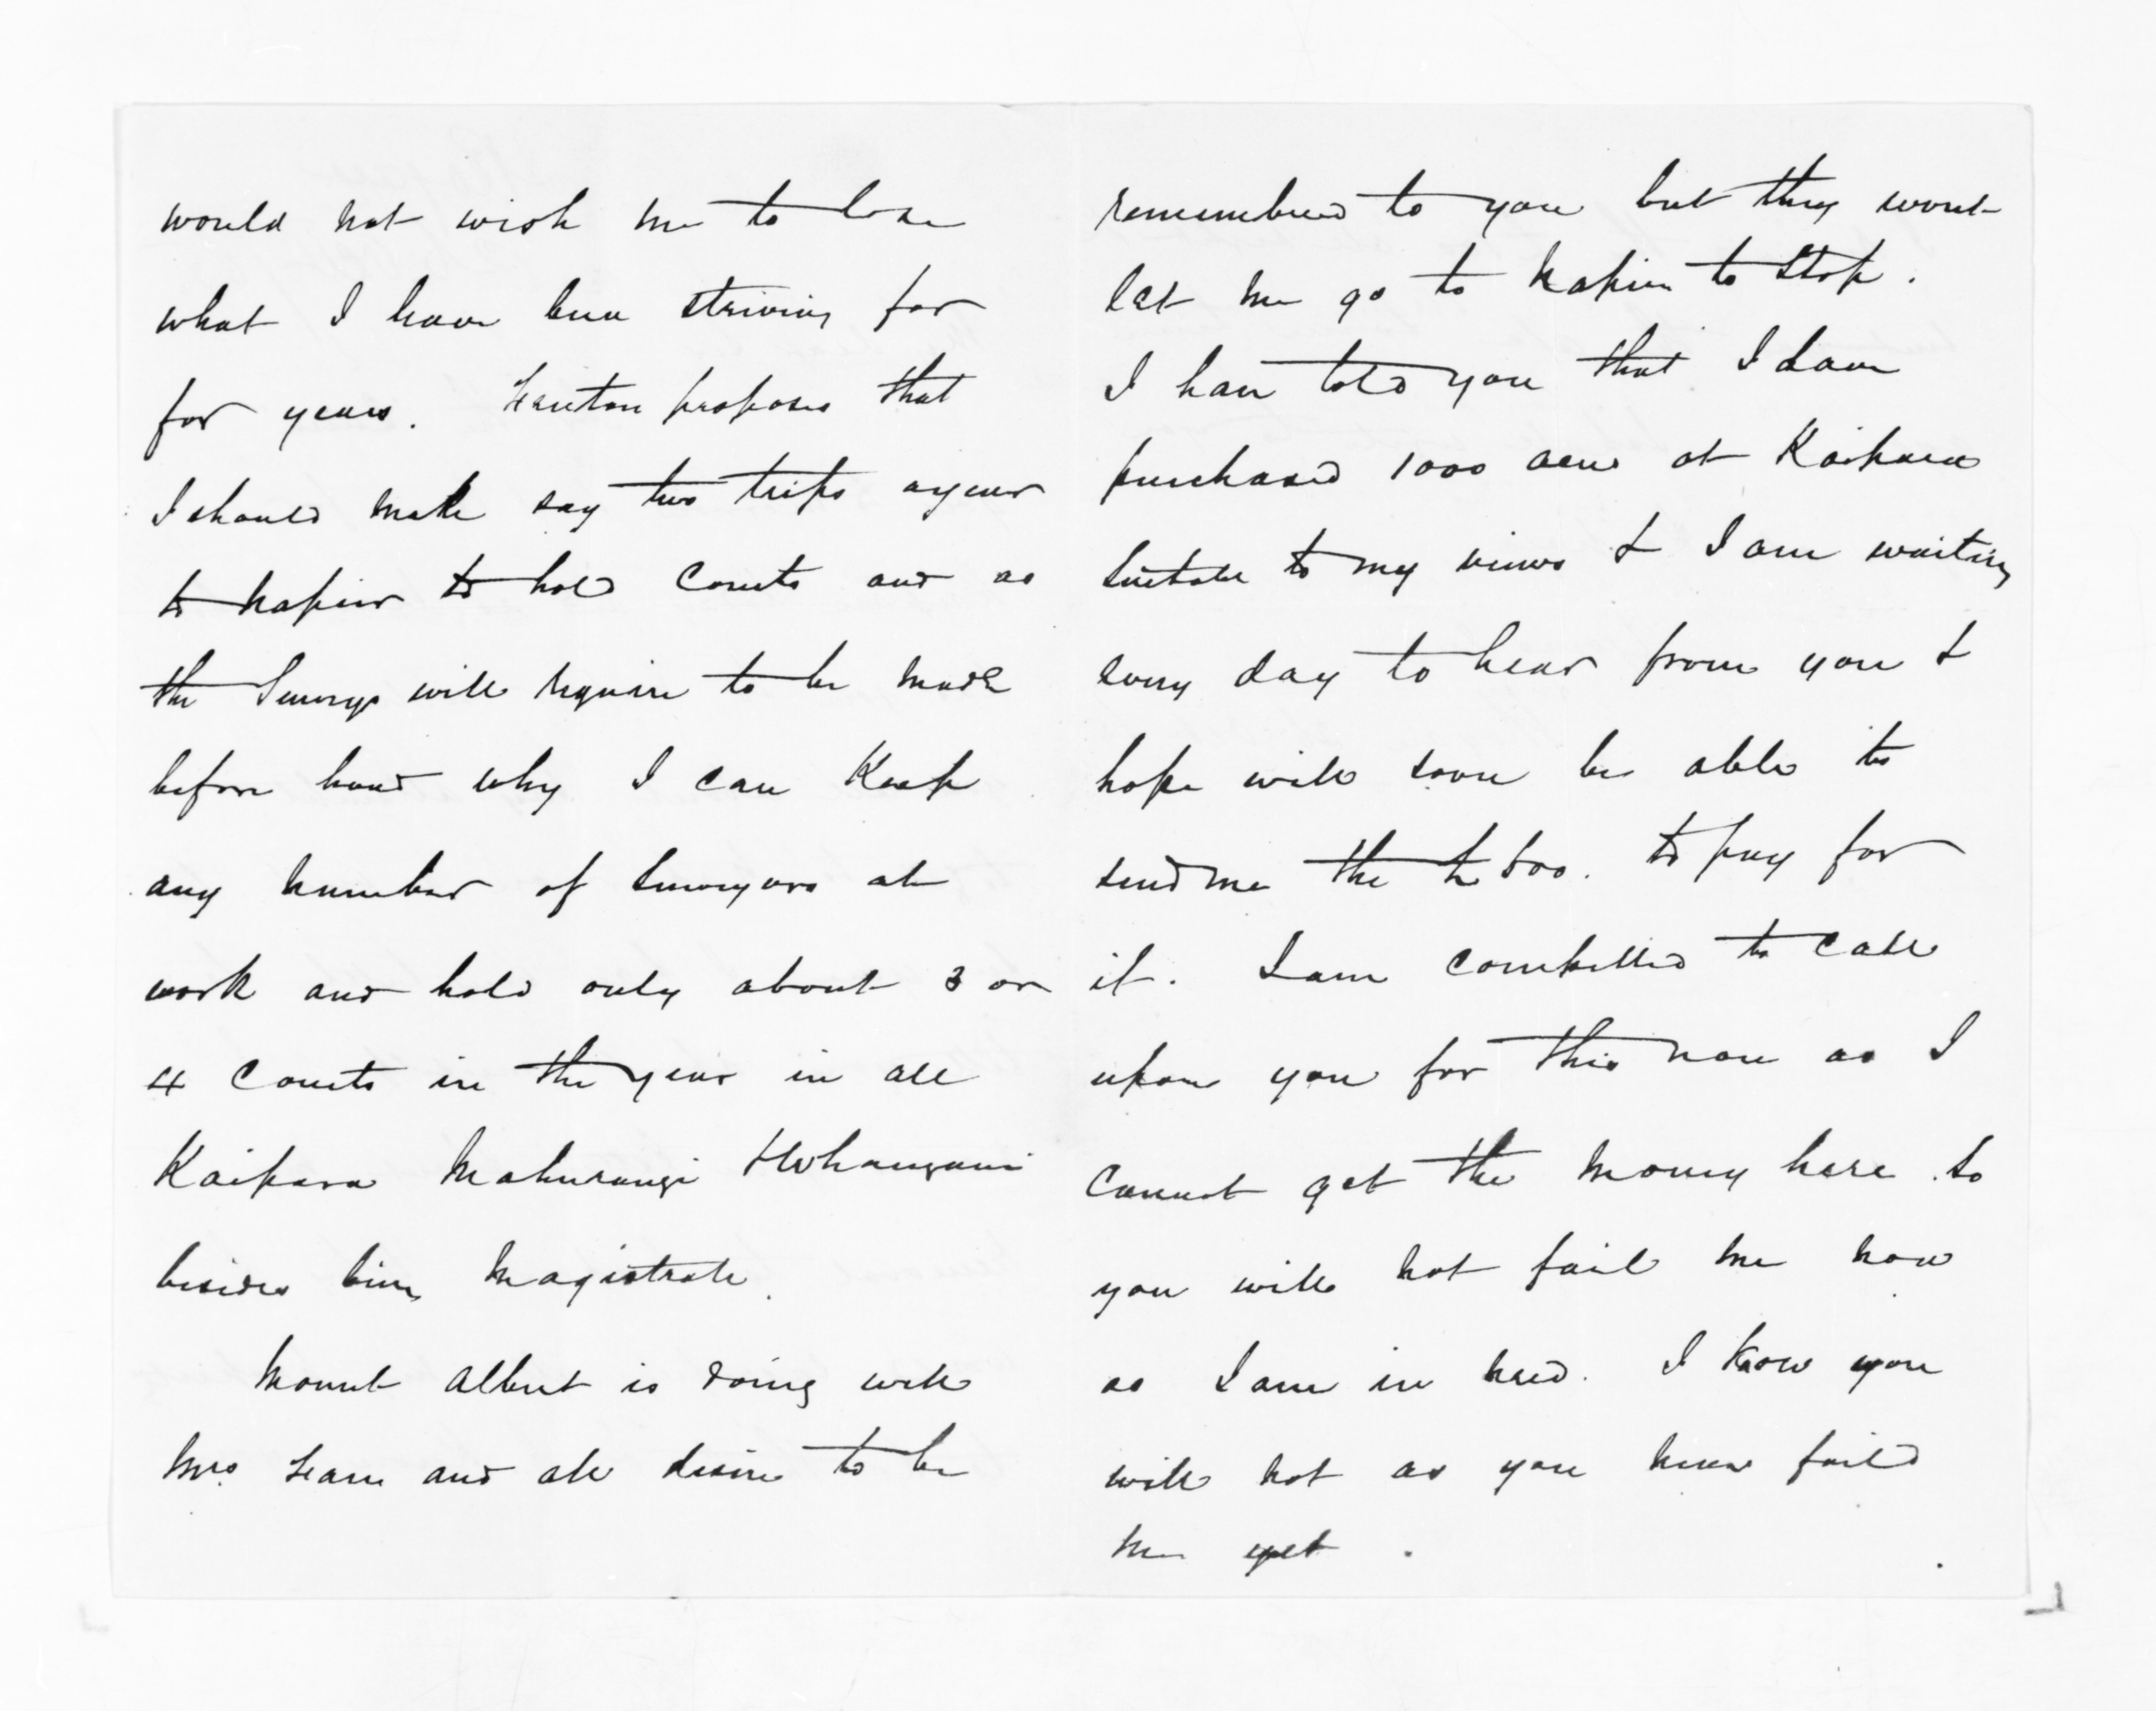 would not wish me to lose
what I have been striving for
for years. Fenton proposes that
I should make say two trips a year
to Napier to hold Courts and as
the Surveys will require to be made
before hand why I can Keep
any number of Surveyors at
work and hold only about 3 or
4 Courts in the year in all
Kaipara Mahurangi & Whangarei
besides being Magistrate.
Mount Albert is doing well
Mrs and all desire to be
remembered to you but they wont
let me go to Napier to Stop.
I have told you that I have
purchased 1000 acres at Kaipara
suitable to my views & I am waiting
every day to hear from you &
hope will soon be able to
send me the £500. to pay for
it. I am compelled to call
upon you for this now as I
cannot get the money here so
you will not fail me now
as I am in need. I Know you
will not as you never failed
me yet.